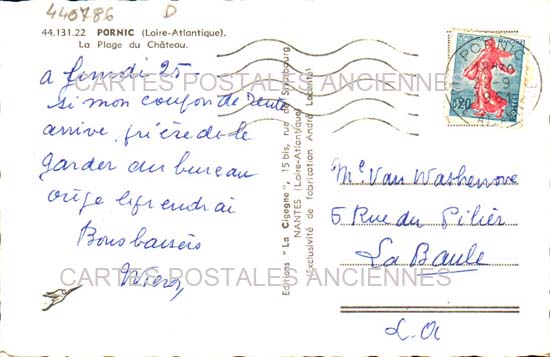 440786 D
44.131.22 PORNIC (Loire-Atlantique).
La Plage du Château.
CARTES POSTALES ANCIENNES
a lundi 25
si mon coupon de rente
arrive, prière de le
garder au bureau
où je le prendrai
Bons baisers
Editions "La Cigogne", 15 bis, rue de Strasbourg
NANTES (Loire-Atlantique)
(Exclusivité de fabrication André Lecerte)
PORNIC
0,20
POSTES
Mc Van
5 Rue du Pilier
La Baule
L. A
CARTES POSTALES ANCIENNES